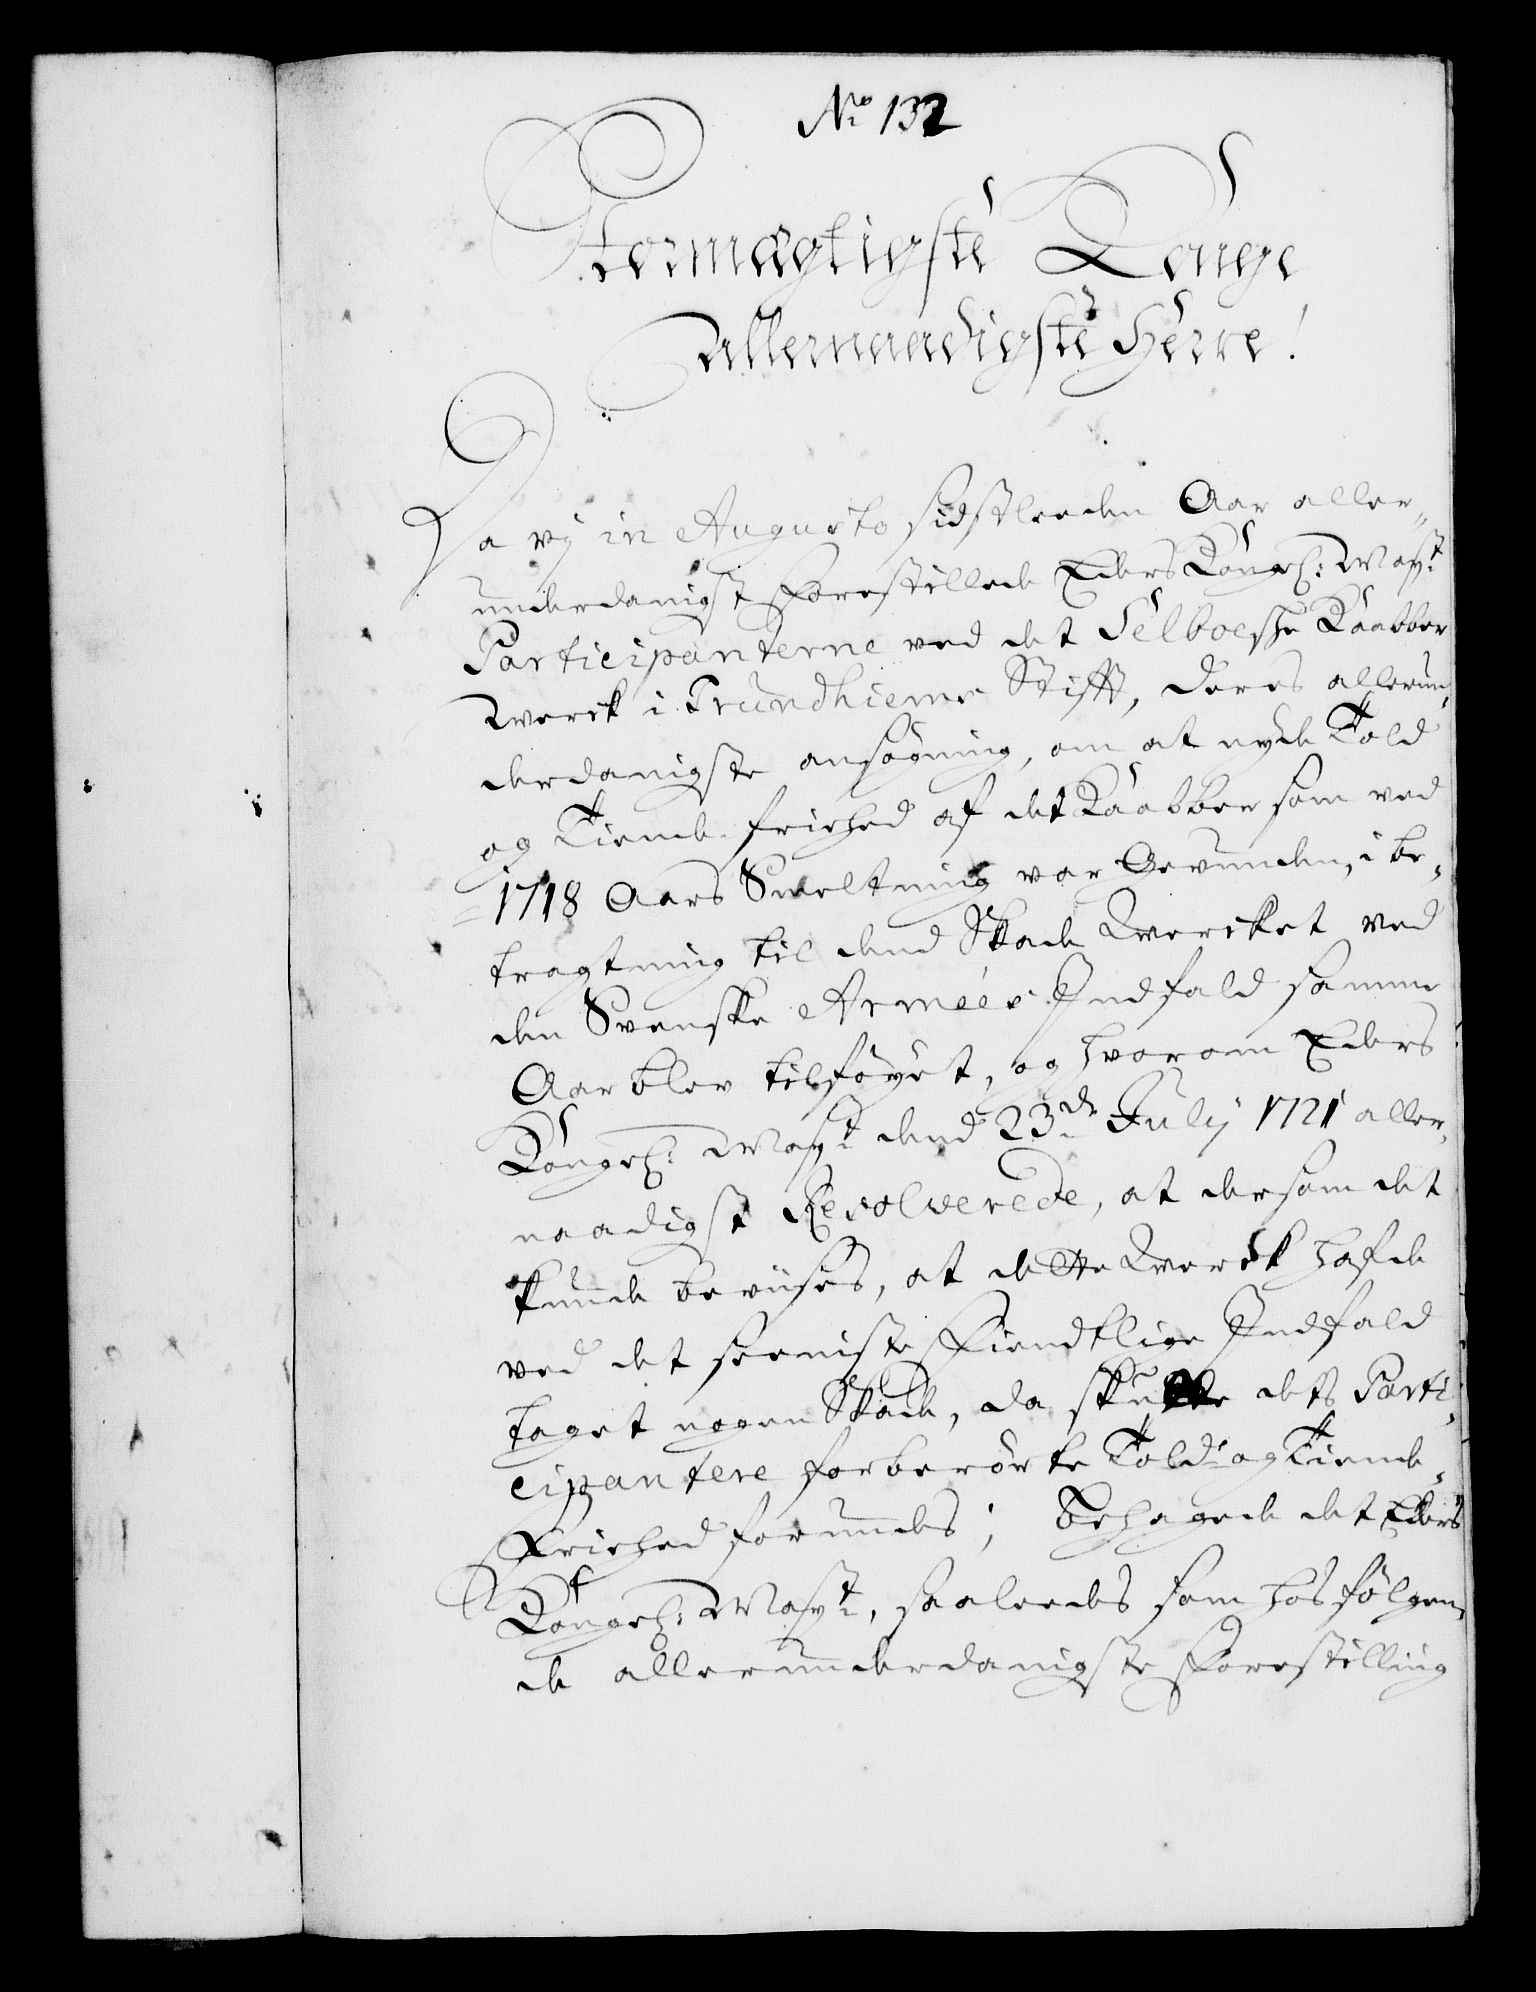 No 132
Stormægtigste Konge
allernaadigste Herre!
Da vj in Augusto sidstleeden Aar aller-
underdanigst forestillede Eders Kongel: Mayt
Participanterne ved det Selboeshe Kaabber
Werck i Trundhiems Stifft, deres allerun-
derdanigste ansøgning, om at nyde Told
og Tiende-friehed af det Kaabber som ved
1718 Aars Smeltning var Gevunden, i be-
tragtning til dend Skade Wercket ved
den Svenske Armées Indfald samme
Aar blev tilføyet, og hvorom Eders
Kongel: Mayt dend 23de Julij 1721 aller-
naadigst Resolverede, at dersom det
kunde beviises, at dette Werck hafde
ved det seeniste Fiendtlige Indfald
taget nogen Skade, da skulle dets Parti-
cipantere forberørte Told- og Tiende-
Friehed forundes; Behagede det Eders
Kongel: Mayt, saaleedes som hos følgen-
de allerunderdanigste Forestilling